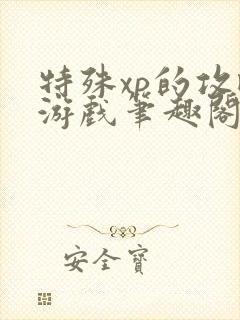 特殊xp的攻
游戏笔趣阁
安全宝